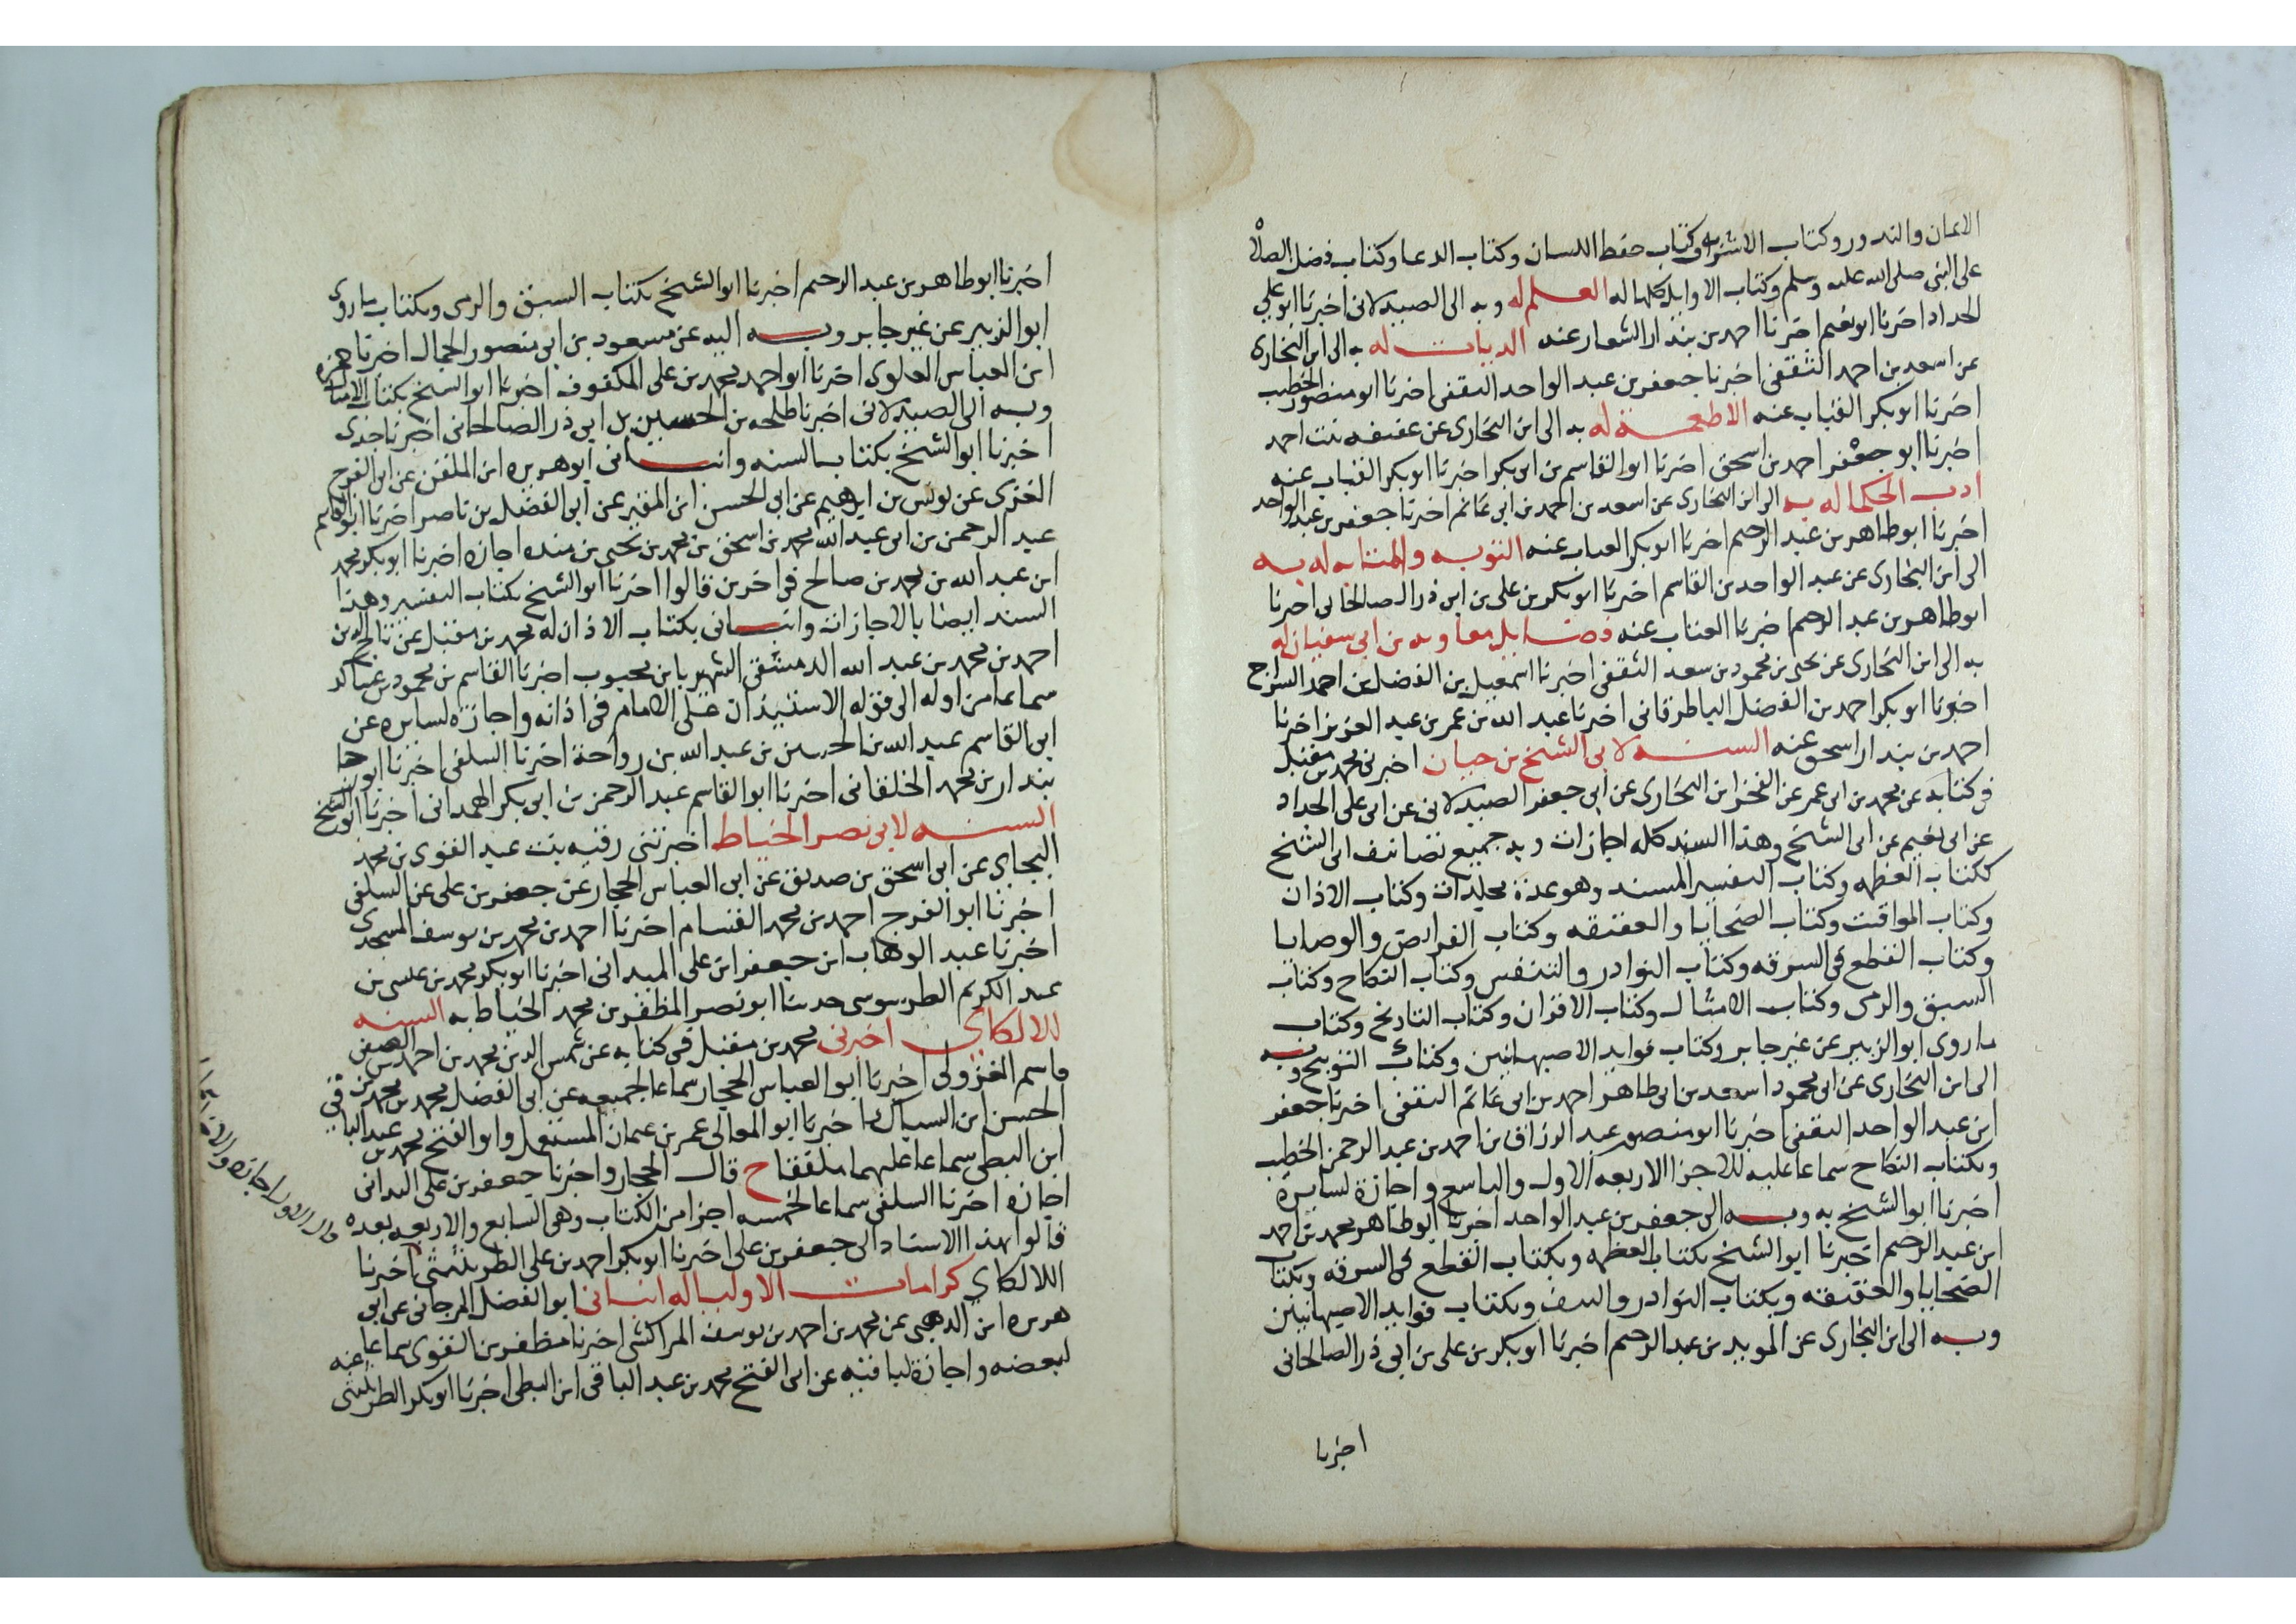 الايمان والندور وكتاب الاشربه وكتاب حفظ اللسان وكتاب الدعا وكتاب فضل الصلاة
على النبي صلى الله عليه وسلم وكتاب الاوايل كلها له العلم له وبه الى الصيدلانى اخبرنا ابو علي
الحداد اخبرنا ابو نعيم اخبرنا احمد بن بندار الشعار عنه الديات له به الى ابن البخارى
عن اسعد بن احمد الثقفى اخبرنا جعفر بن عبد الواحد الثقفى اخبرنا ابو منصور الخطيب
اخبرنا ابو بكر القباب عنه الاطعمة له به الى ابن البخارى عن عفيفه بنت احمد
اخبرنا ابو جعفر احمد بن اسحق اخبرنا ابو القاسم بن ابى بكر اخبرنا ابو بكر القباب عنه
ادب الحكما له به الى ابن البخارى عن اسعد بن احمد بن ابى غانم اخبرنا جعفر بن عبد الواحد
اخبرنا ابو طاهر بن عبد الرحيم اخبرنا ابو بكر القباب عنه التوبه والمتابه له به
الى ابن البخارى عن عبد الواحد بن القاسم اخبرنا ابو بكر بن على بن ابى ذر الصالحانى اخبرنا
ابو طاهر بن عبد الرحيم اخبرنا القباب عنه فضايل معاويه بن ابى سفيان له
به الى ابن البخارى عن يحيى بن محمود بن سعد الثقفى اخبرنا اسمعيل بن الفضل بن احمد السراج
اخبرنا ابو بكر احمد بن الفضل الباطرقانى اخبرنا عبد الله بن عمر بن عبد العزيز اخبرنا
احمد بن بندار اسحق عنه السنه لابى الشيخ بن حيان اخبرنى محمد بن مقبل
فى كتابه عن محمد بن ابى عمر عن الفخر ابن البخارى عن ابى جعفر الصيدلانى عن ابى على الحداد
عن ابى نعيم عن ابى الشيخ وهذا السند كله اجازات وبه جميع تصانيف ابى الشيخ
ككتاب العظمه وكتاب التفسير المسند وهو عدة مجلدات وكتاب الاذان
وكتاب المواقيت وكتاب الضحايا والعقيقه وكتاب الفرايض والوصايا
وكتاب القطع فى السرقه وكتاب النوادر والنتف وكتاب النكاح وكتاب
السبق والرمى وكتاب الامثال وكتاب الاقران وكتاب التاريخ وكتاب
ما روى ابو الزبير عن غير جابر وكتاب فوايد الاصبهانيين وكتاب التوبيخ وبه
الى ابن البخارى عن ابى محمود اسعد بن ابى طاهر احمد بن ابى غانم الثقفى اخبرنا جعفر
ابن عبد الواحد الثقفى اخبرنا ابو منصور عبد الرزاق بن احمد بن عبد الرحمن الخطيب
وبكتاب النكاح سماعا عليه للاجزا الاربعه الاول والتاسع واجازة لسايره
اخبرنا ابو الشيخ به وبه الى جعفر بن عبد الواحد اخبرنا ابو طاهر محمد بن احمد
ابن عبد الرحيم اخبرنا ابو الشيخ بكتاب العظمه وبكتاب القطع فى السرقه وبكتاب
الضحايا والعقيقه وبكتاب النوادر والنتف وبكتاب فوايد الاصبهانيين
وبه الى ابن البخارى عن المويد بن عبد الرحيم اخبرنا ابو بكر بن على بن ابى ذر الصالحانى
اخبرنا
اخبرنا ابو طاهر بن عبد الرحيم اخبرنا ابو الشيخ بكتاب السبق والرمى وبكتاب ما روى
ابو الزبير عن غير جابر وبه اليه عن مسعود بن ابى منصور الجمال اخبرنا حمزه
ابن العباس العلوى اخبرنا ابو احمد محمد بن على المكفوف اخبرنا ابو الشيخ بكتاب الامثال
وبه الى الصيدلانى اخبرنا طلحه بن الحسين بن ابى ذر الصالحانى اخبرنا جدى
اخبرنا ابو الشيخ بكتاب السنه وانبانى ابو هريره ابن الملقن عن ابى الفرج
الغزى عن يونس بن ابراهيم عن ابى الحسن ابن المقير عن ابى الفضل بن ناصر اخبرنا ابو القاسم
عبد الرحمن بن ابى عبد الله محمد بن اسحق بن محمد بن يحيى بن منده اجازه اخبرنا ابو بكر محمد
ابن عبد الله بن محمد بن صالح فى اخرين قالوا اخبرنا ابو الشيخ بكتاب التفسير وهذا
السند ايضا بالاجازات وانبانى بكتاب الاذان له محمد بن مقبل عن
احمد بن محمد بن عبد الله الدمشقى الشهير بابن محبوب اخبرنا القاسم بن محمود بن عساكر
سماعا من اوله الى قوله الاستيذان على الامام فى اذانه واجازه لسايره عن
ابى القاسم عبد الله بن الحسين بن عبد الله بن رواحة اخبرنا السلفى اخبرنا ابو رجا
بندار بن محمد الخلقانى اخبرنا ابو القاسم عبد الرحمن بن ابى بكر الهمدانى اخبرنا ابو الشيخ
السنه لابى نصر الخياط اخبرتنى رقيه بنت عبد القوى بن محمد
البجاى عن ابى اسحق بن صديق عن ابى العباس الحجار عن جعفر بن على عن السلفى
اخبرنا ابو الفرج احمد بن محمد القسام اخبرنا احمد بن محمد بن يوسف المسجدى
اخبرنا عبد الوهاب ابن جعفر ابن على الميدانى اخبرنا ابو بكر محمد بن عيسى بن
عبد الكريم الطرسوسى حدثنا ابو نصر المظفر بن محمد الخياط به السنه
لللالكاى اخبرنى محمد بن مقبل فى كتابه عن شمس الدين محمد بن احمد بن الصفى
قاسم الغزولى اخبرنا ابو العباس الحجار سماعا لجميعه عن ابى الفضل محمد بن محمد بن
الحسن ابن السباك اخبرنا ابو المعالى عمر بن عثمان المستعمل وابو الفتح محمد بن عبد الباقى
ابن البطى سماعا عليهما ملفقا ح قال الحجار واخبرنا جعفر بن على الهمدانى
اجازه اخبرنا السلفى سماعا لخمسه اجزا من الكتاب وهى السابع والاربعه بعده
قالوا بهذا الاسناد الى جعفر بن على اخبرنا ابو بكر احمد بن على الطريثيثى اخبرنا
اللالكاى كرامات الاوليا له انبانى ابو الفضل المرجانى عن ابى
هريره ابن الذهبى عن محمد بن احمد بن يوسف المراكشى اخبرنا مظفر بن الفوى سماعا عليه
لبعضه واجازة لباقيه عن ابى الفتح محمد بن عبد الباقى ابن البطى اخبرنا ابو بكر الطريثيثى